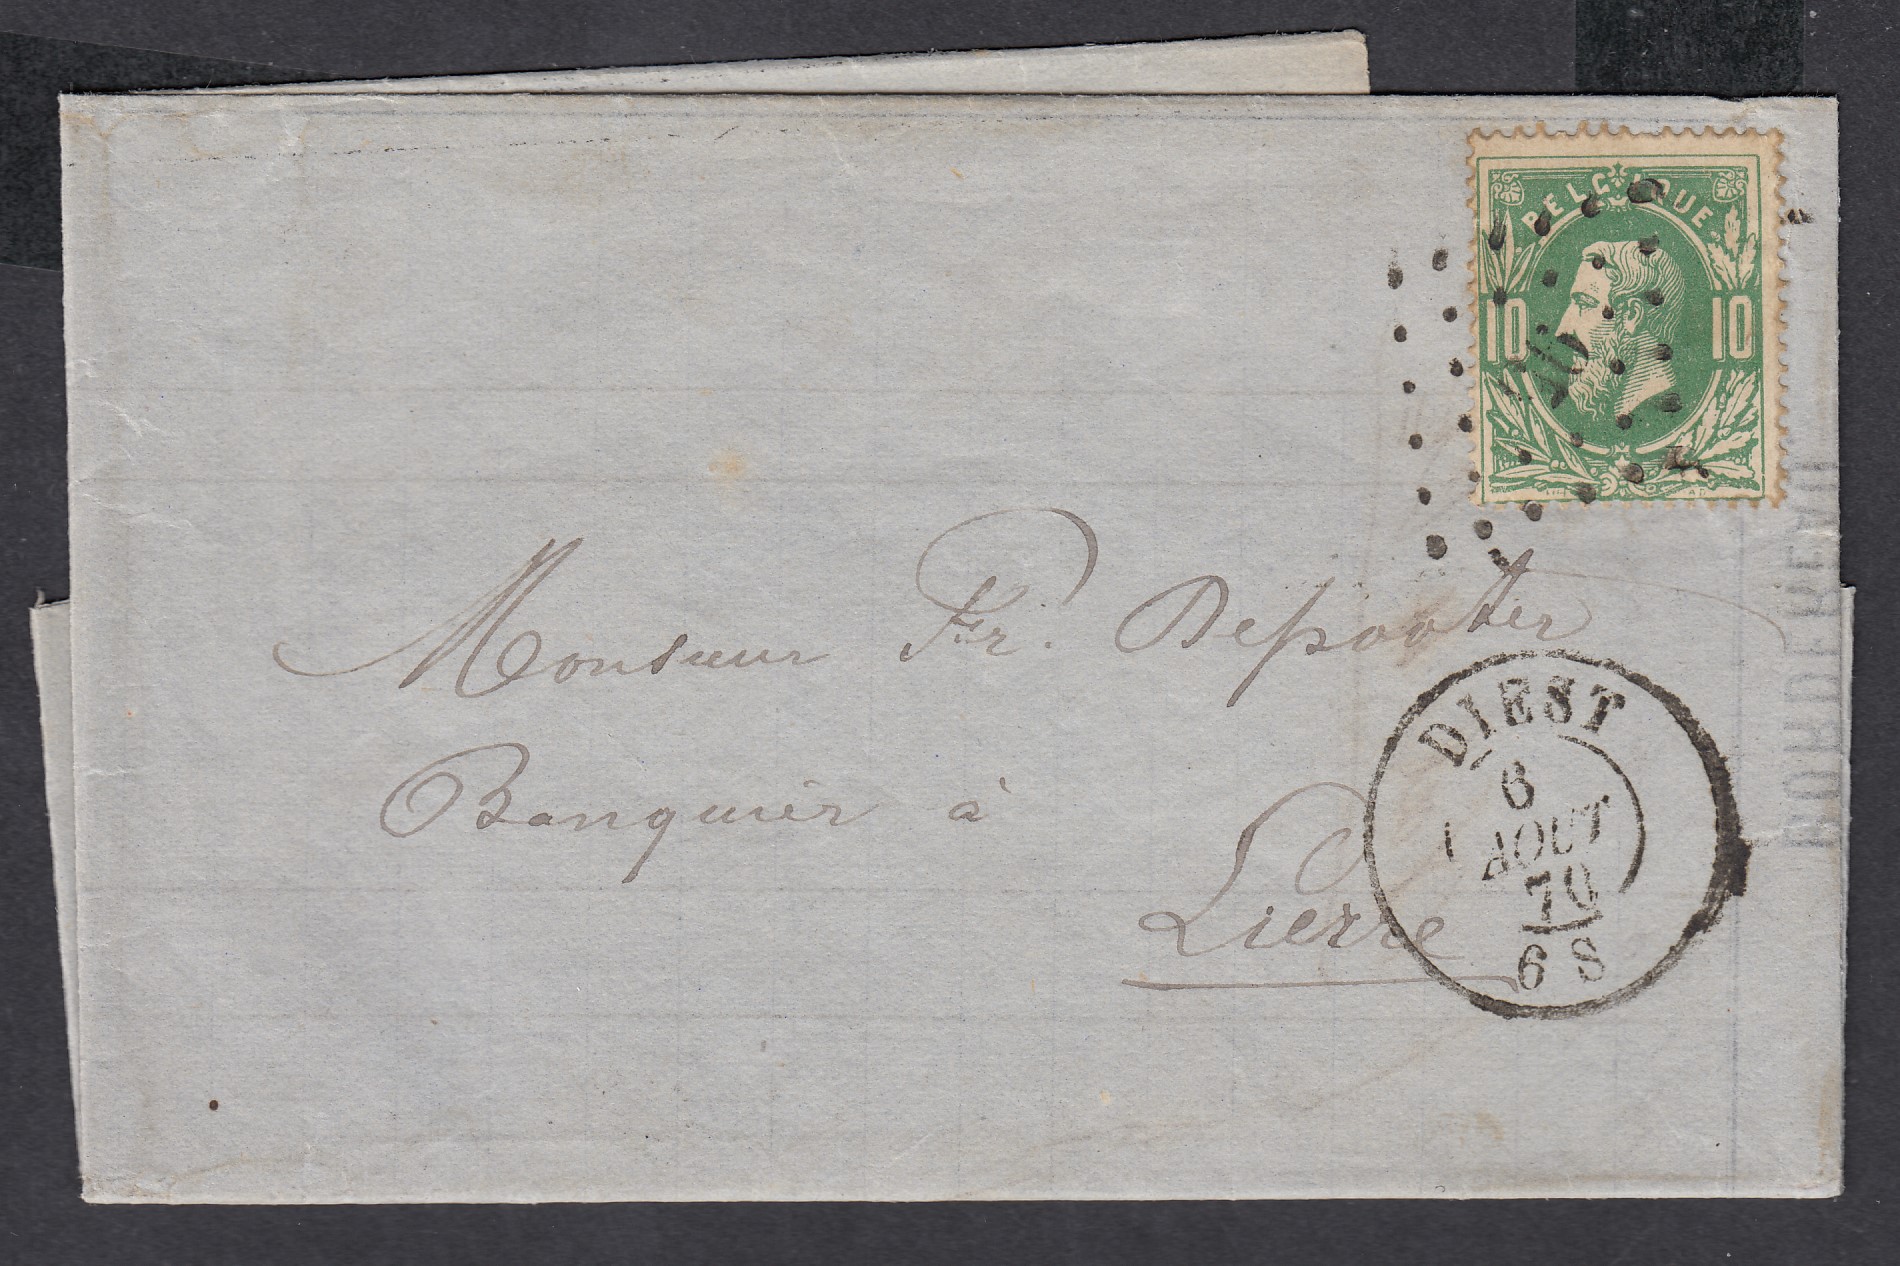 BELGIQUE
10 10
Monsieur Fr. Depooter
Banquier à
Lierre
DIEST
6
AOUT
70
6 S